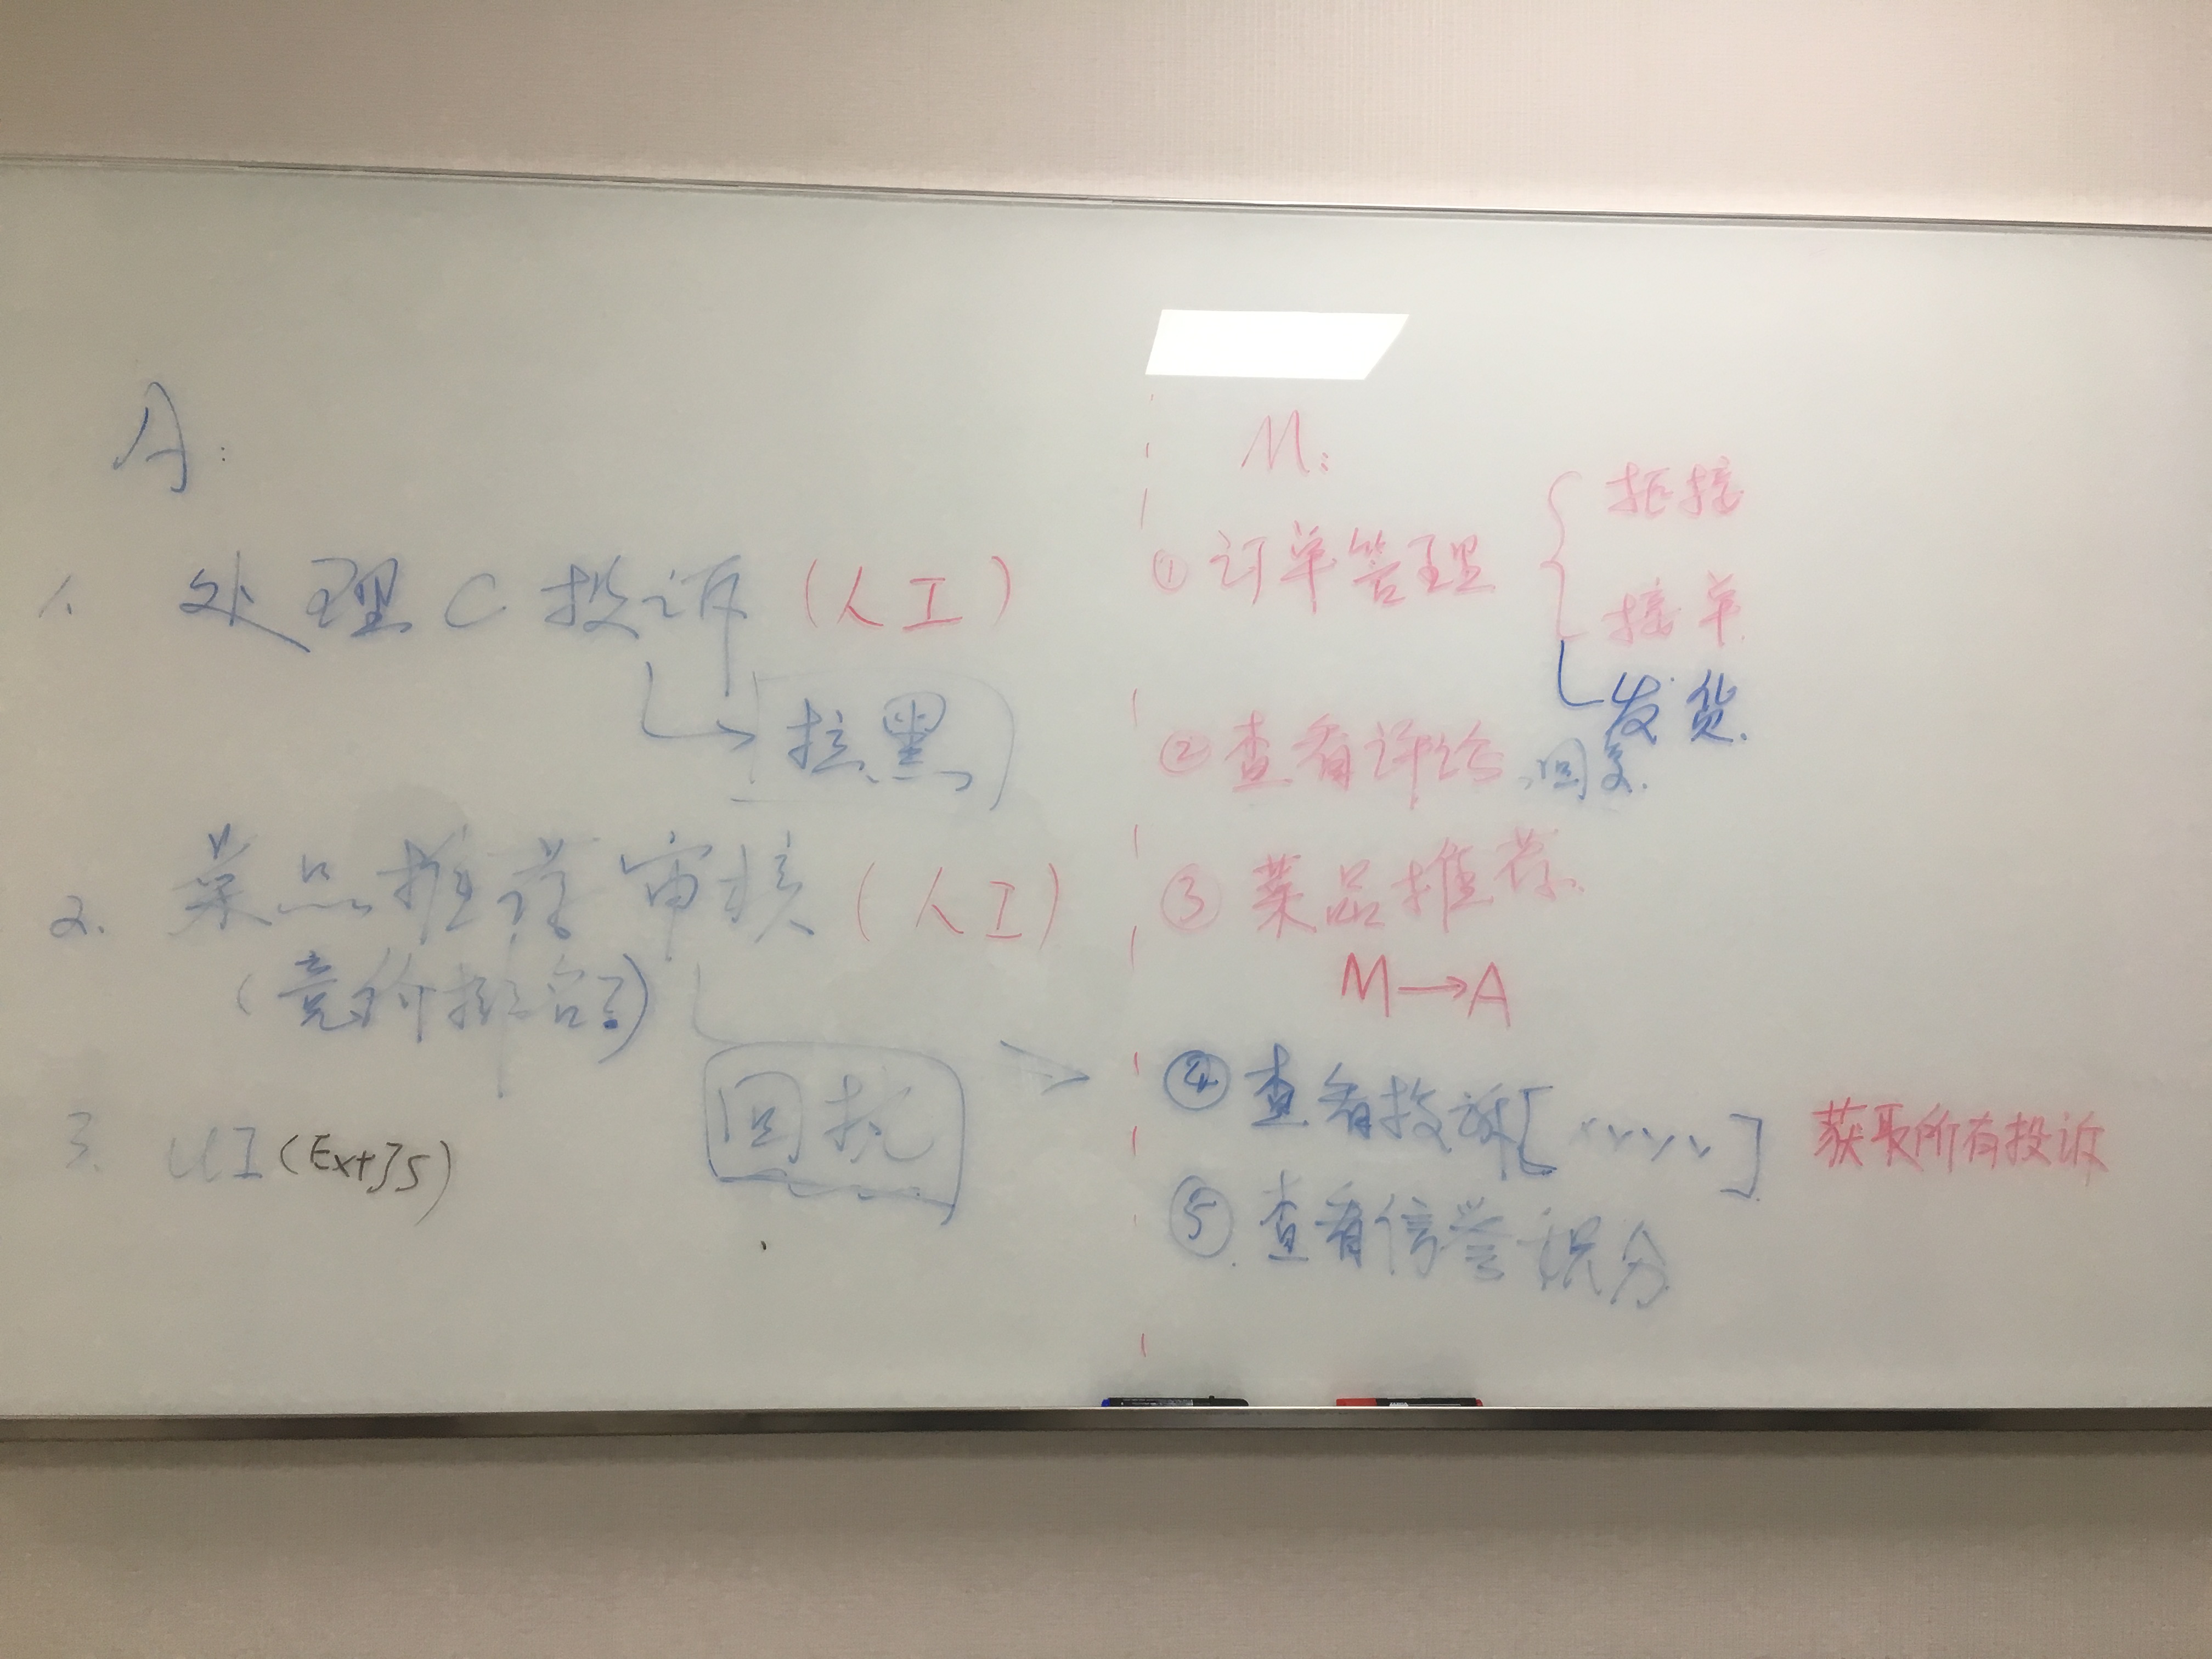 A:
1. 处理C投诉(人工)
拉黑
2. 菜品推荐审核(人工)
(竞价排名)
回扰
3. UI(ExtJS)
M:
① 订单管理
拒接
接单
发货.
② 查看评论,回复.
③ 菜品推荐.
M→A
④ 查看投诉[、、、、、] 获取所有投诉
⑤. 查看信誉积分